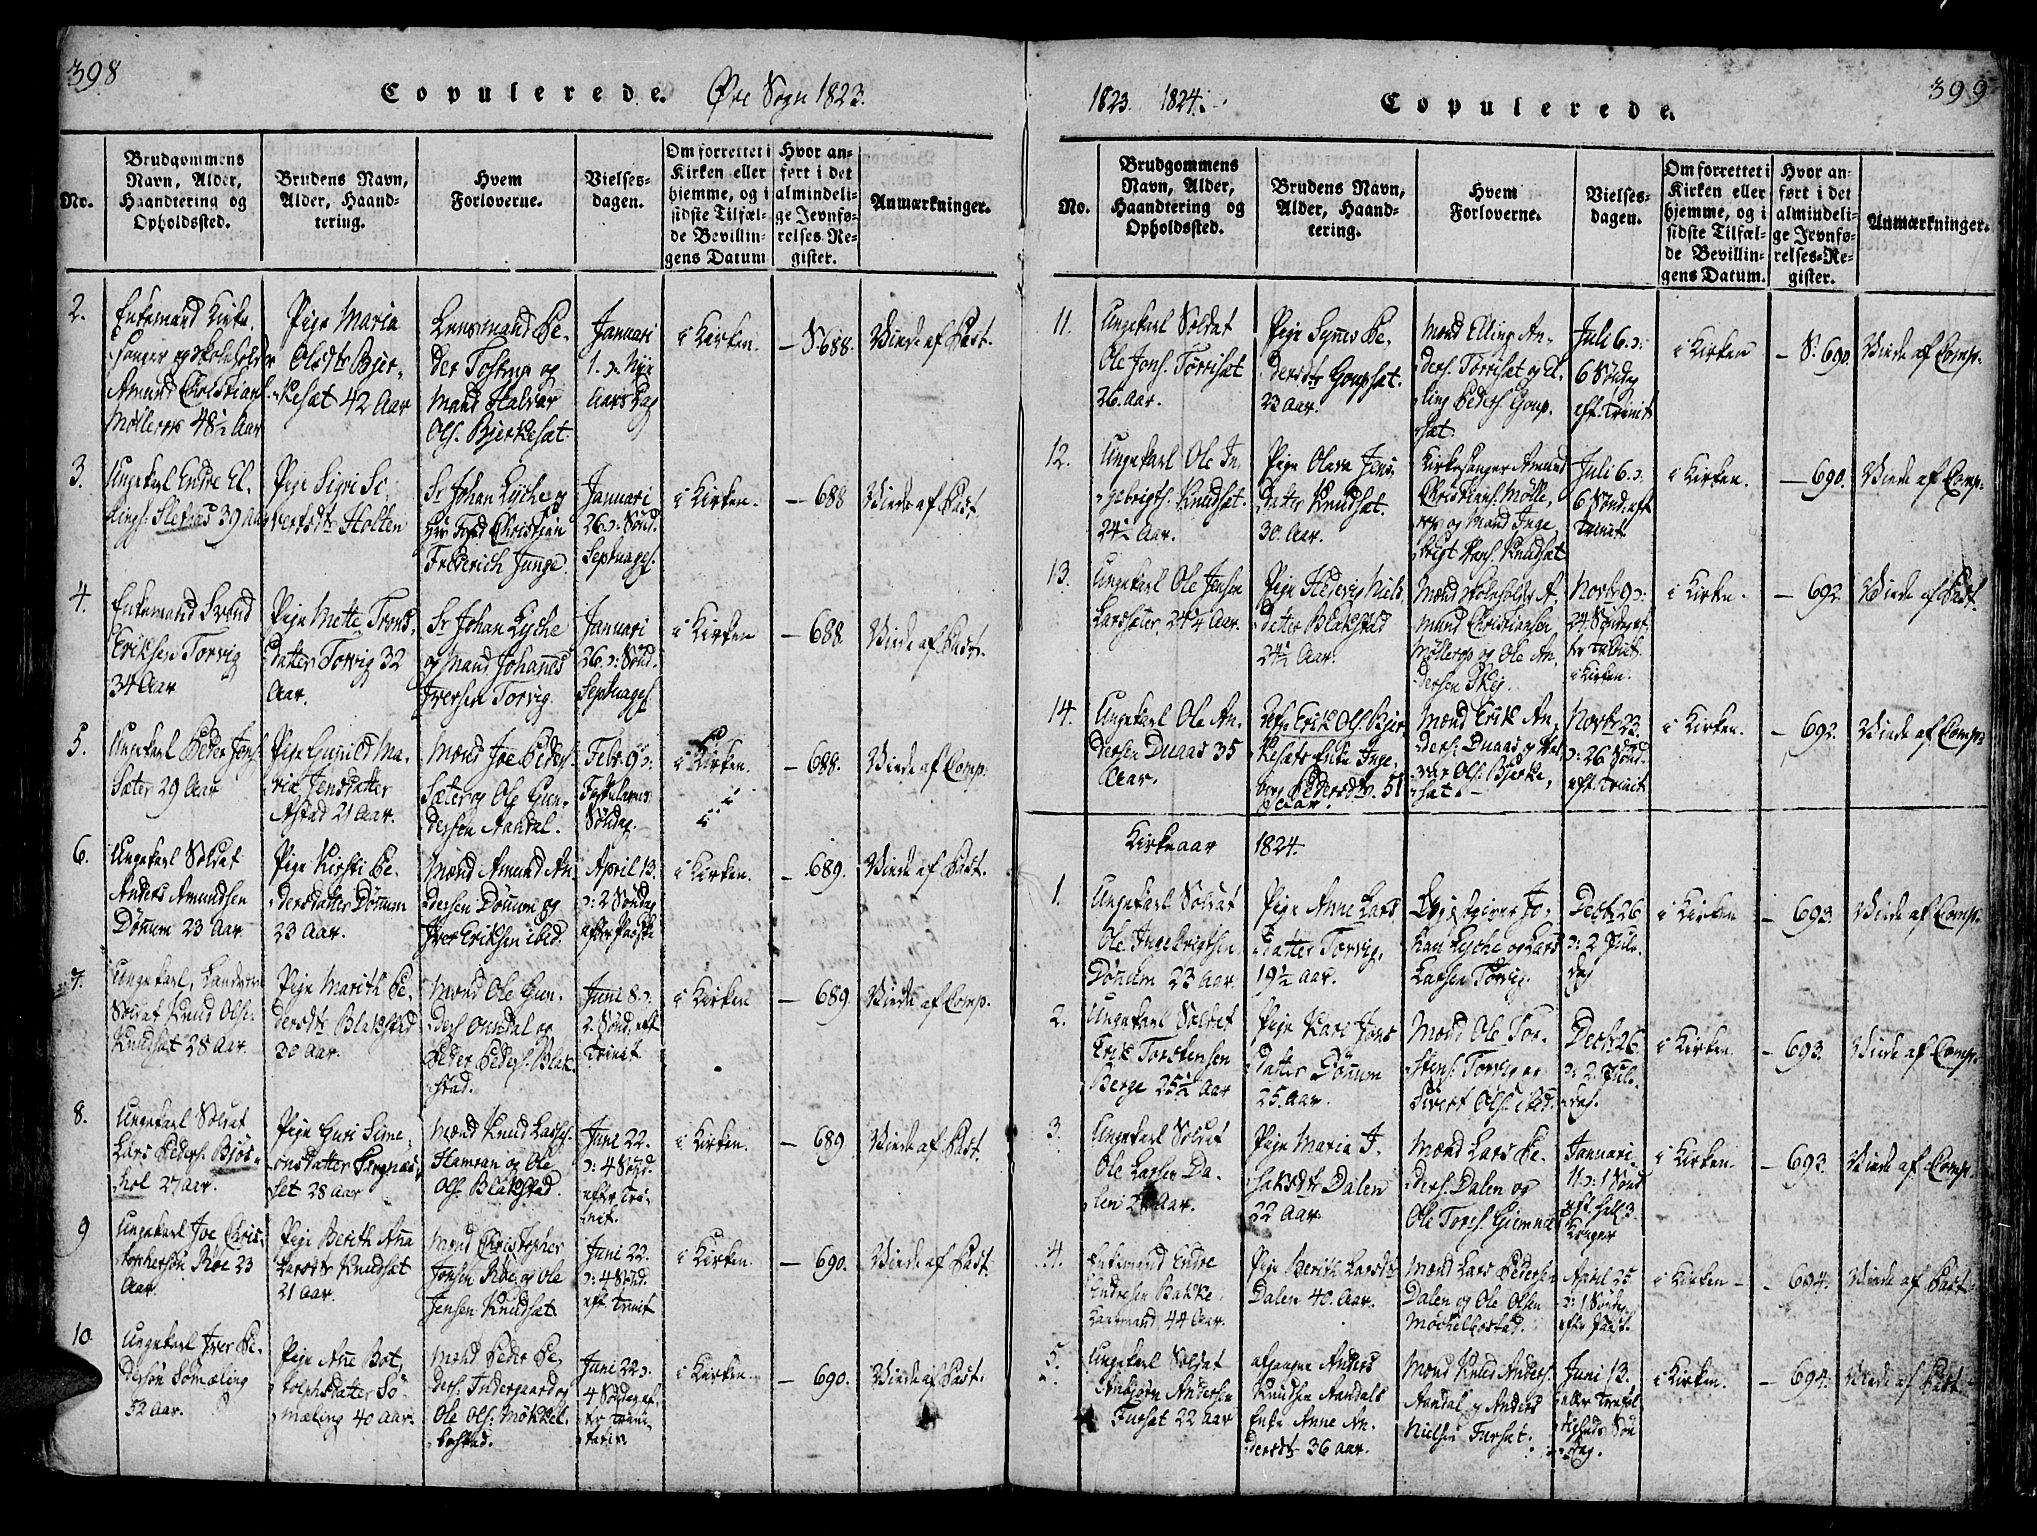 398
Copulerede. Øre Sogn 1823.
No.
Brudgommens
Navn, Alder,
Haandtering og
Opholdssted.
Brudens Navn,
Alder, Haand-
tering.
Hvem
Forloverne.
Vielses-
dagen.
Om forrettet i
Kirken eller
hjemme, og i
sidste Tilfæl-
de Bevillin-
gens Datum
Hvor an-
ført i det
almindeli-
ge Jevnfø-
relses-Re-
gister.
Anmærkninger.
2.
Enkemand Kirke-
sanger og Skoleholder
Amund Christians.
Møllerop 48½ Aar
Pige Maria
Olsdtr Bjer-
kesæt 42 Aar
Lensmand Pe-
der Tostrup og
Mand Halvar
Ols. Bjerkesæt.
Januari
1. ɔ: Nyt
Aars Dag
i Kirken.
– S. 688.
Viede af Past.
3.
Ungekarl Endre El-
lings. Sletnes 39 Aar
Pige Sigri Si-
vertsdtr Holten
Sr Johan Lyche og
Christian
Frederich Junge.
Januari
26. ɔ: Sønd.
Septuages.
i Kirken.
– 688
Viede af Past.
4.
Enkemand Trond
Eriksen Torvig
34 Aar
Pige Mette Trons-
datter Torvig 32
Aar.
Sr Johan Lyche
og Mand Johannes
Iversen Torvig.
Januari
26. ɔ: Sønd.
Septuages.
i Kirken
– 688
Viede af Past.
5.
Ungekarl Peder Jons.
Sæter 29 Aar
Pige Gunild Ma-
ria Jensdatter
Astad 21 Aar.
Mænd Joe Peders.
Sæter og Ole Gun-
dersen Aandal.
Febr. 9 ɔ:
Fastelavns
Søndag.
i Kirken.
– 688.
Viede af Comp.
6.
Ungekarl Soldat
Anders Amundsen
Dønum 23 Aar
Pige Kirsti Pe-
dersdatter Dønum
23 Aar.
Mænd Amund An-
dersen Dønum og
Iver Eriksen ibid.
April 13.
ɔ: 2 Søndag
efter Paaske
i Kirken.
– 689.
Viede af Past.
7.
Ungekarl, Landværn
Soldat Knud Ols.
Knudsæt 28 Aar.
Pige Marith Pe-
dersdtr Blakstad
30 Aar.
Mænd Ole Gun-
ders. Aandal og
Peder Peders. Blak-
stad.
Juni 8 ɔ:
2. Sønd. eft.
Trinit.
i Kirken
– 689
Viede af Comp.
8.
Ungekarl Soldat
Lars Peders. Bjør-
hol 27 Aar.
Pige Guri Sime-
onsdatter
28 Aar
Mænd Knud Lars.
Hamran og Ole
Ols. Blakstad.
Juni 22.
ɔ: 4 Sønd.
efter Tri-
nit.
i Kirken.
– 689
Viede af Past.
9
Ungekarl Joe Chris-
tophersen Røe 23
Aar.
Pige Berith Ana
Larsdtr Knudsæt
21 Aar.
Mænd Christopher
Jonsen Røe og Ole
Jensen Knudsæt
Juni 22.
ɔ: 4 Sønd.
eft. Trinit
i Kirken.
– 690.
Viede af Past.
10
Ungekarl Iver Pe-
dersen Somæling
32 Aar.
Pige Ane Bot-
tolphsdater So-
mæling 40 Aar.
Mænd Peder Pe-
ders. Indergaard og
Ole Ols. Møkkel-
bostad.
Juni 22 ɔ:
4 Søndag ef-
ter Trini-
tatis
i Kirken.
– 690.
Viede af Past.
1823. 1824. Copulerede. 399
No.
Brudgommens
Navn, Alder,
Haandtering og
Opholdssted.
Brudens Navn,
Alder, Haand-
tering.
Hvem
Forloverne.
Vielses-
dagen.
Om forrettet i
Kirken eller
hjemme, og i
sidste Tilfæl-
de Bevillin-
gens Datum.
Hvor an-
ført i det
almindeli-
ge Jevnfø-
relses-Re-
gister.
Anmærkninger.
11.
Ungekarl Soldat
Ole Jons. Torrisæt
26. Aar.
Pige Synnev Pe-
dersdtr Goupsæt.
23 Aar.
Mænd Elling An-
ders. Torrisæt og El-
ling Peders. Goup-
sæt.
Juli 6. ɔ:
6 Søndag
eft. Trinit
i Kirken
– S. 690.
Viede af Comp.
12.
Ungekarl Ole In-
gebrigts. Knudsæt.
24½ Aar.
Pige Olava Jens-
datter Knudsæt.
30 Aar.
Kirkesanger Amund
Christians. Mølle-
rop og Mand Inge-
brigt Knudsæt
Juli 6. ɔ:
6 Sønd. eft
Trinit.
i Kirken.
– 690.
Viede af Comp.
13.
Ungekarl Ole Jensen
Larssæter. 24½ Aar.
Pige Hedevig Niels-
datter Blakstad
24½ Aar.
Mænd Skoleholder A-
mund Christiansen
Møllerop og Ole An-
dersen Skej.
Novbr 9 ɔ:
24 Søndag ef-
ter Trinit.
i Kirken.
i Kirken.
– 692
Viede af Past.
14.
Ungekarl Ole An-
dersen Duaas 35
Aar.
Afg. Erik Ols. Bjer-
kesæts Enke Inge-
bor Pedersdtr. 51
Aar.
Mænd Erik An-
ders. Duaas og Hal-
var Ols. Bjerke-
sæt. –
Novbr 23.
ɔ: 26 Sønd.
eft. Trinit
i Kirken.
– 692.
Viede af Comp.
Kirkeaar 1824.
1.
Ungekarl Soldat
Ole Ingebrigtsen
Dønum 23 Aar
Pige Anne Lars
datter Torvig.
19½ Aar.
Jo-
han Lyche og Lars
Larsen Torvig.
Decbr 26
ɔ: 2 Jule-
dag
i Kirken
– 693
Viede af Comp.
2.
Ungekarl Soldat
Erik Torstensen
Berge 25½ Aar
Pige Kari Jons
datter Dønum
25. Aar.
Mænd Ole Tor-
stens. Torvig og
Sivert Ols. ibid.
Decbr 26.
ɔ: 2. Jule-
dag.
i Kirken.
– 693.
Viede af Comp.
3.
Ungekarl Soldat
Ole Larsen Da-
len 2 Aar.
Pige Maria I-
saksdtr Dalen
22 Aar.
Mænd Lars Pe-
ders. Dalen og
Ole Tores. Giemnæs
Januari
11 ɔ: 1 Sønd
eft. hell. 3
Konger
i Kirken.
– 693.
Viede af Comp.
4.
Enkemand Endre
Endresen Bakke
44 Aar.
Pige Berith Larsdtr
Dalen 40. Aar.
Mænd Lars Pedersen
Dalen og Ole Olsen
Møchelbostad.
April 25
ɔ: 1 Søndag
efter Paask.
i Kirken –
– 694.
Viede af Past.
5.
Ungekarl Soldat
Anders.
Fursæt 22 Aar
afgangne Anders
Knudsen Aandals
Enke Anne An-
dersdtr 36 Aar.
Mænd Knud Anders.
Aandal og Anders
Nielsen Fursæt.
Juni 13.
eller Trefol-
digheds Søn-
dag.
i Kirken.
– 694.
Viede af Past.